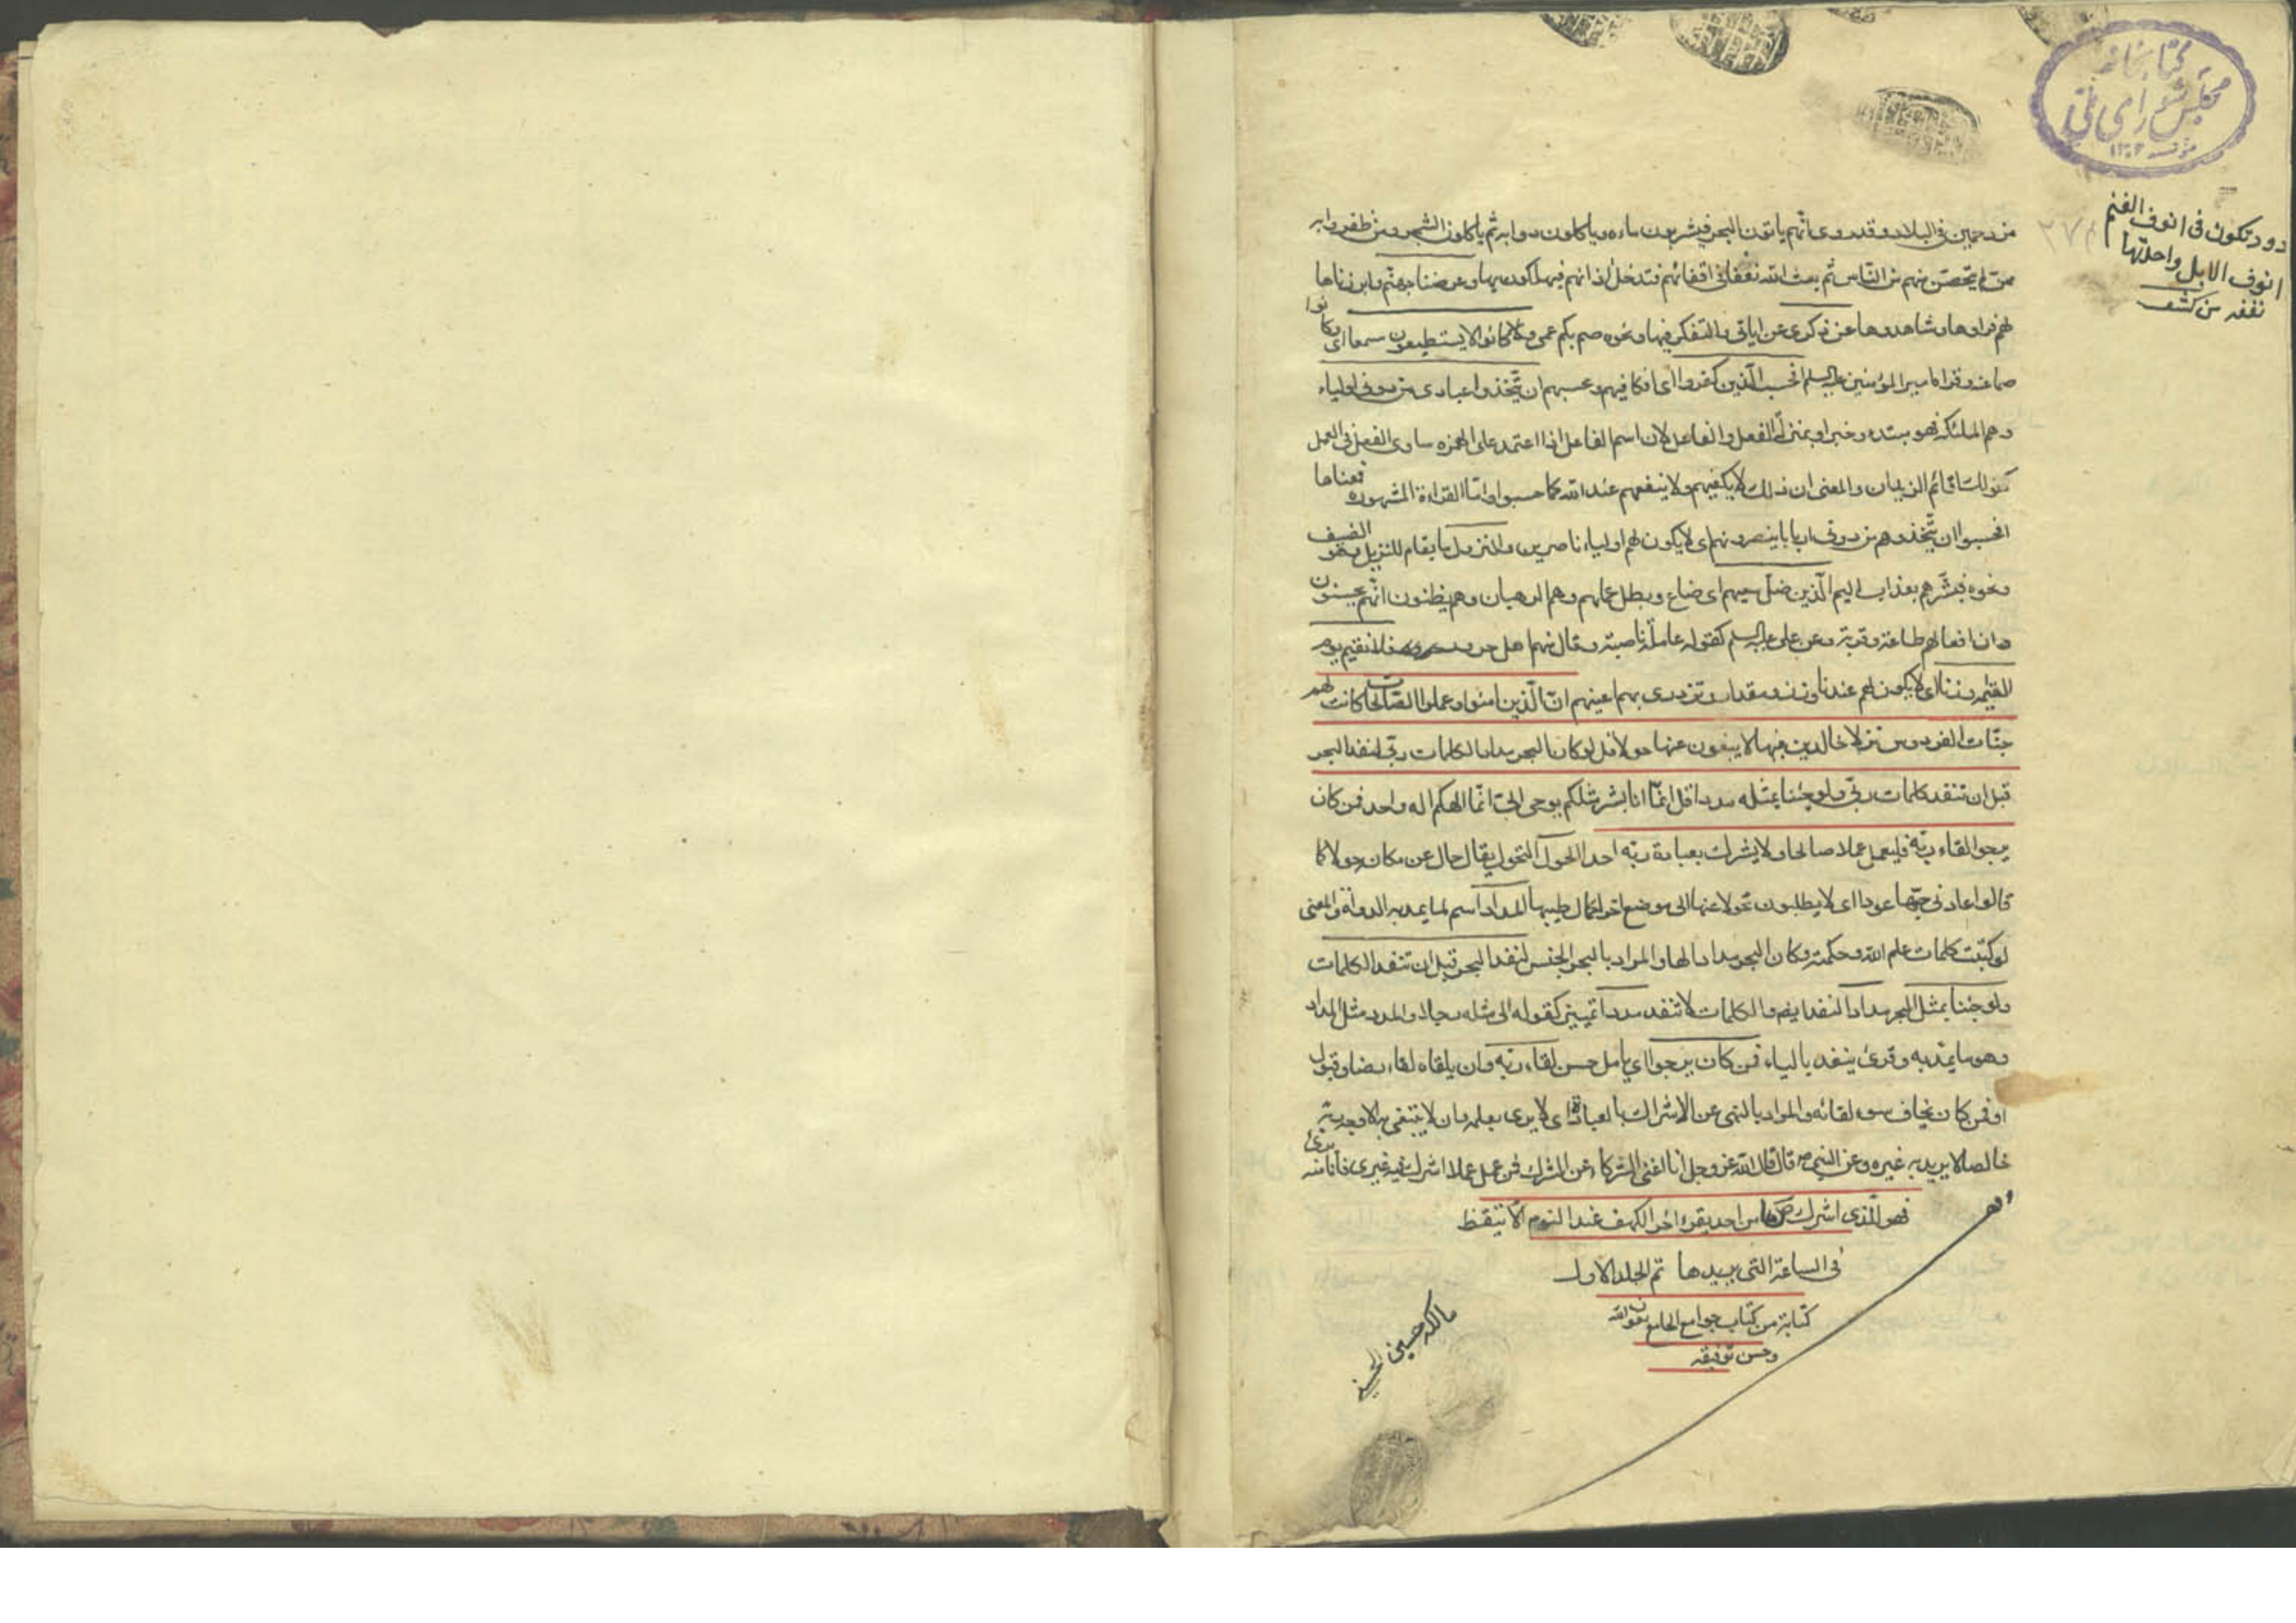 كتابخانه
مجلس شورای ملی
دود تكون فی انوف الغنم
انوف الابل واحدتها
نغفه من كشف
مزدحمين فی البلاد و قد روی انهم ياتون البحر فيشربون ماءه و ياكلون دوابه ثم ياكلون الشجر و من ظفروا به
ممن لم يتحصن منهم من الناس ثم يبعث الله نغفا فی اقفائهم فتدخل اذانهم فيهلكون بها و عرضنا جهنم و ابرزناها
لهم فراوها و شاهدوها عن ذكری عن اياتی و التفكر فيها و نحوه صم بكم عمی و كانوا لا يستطيعون سمعا ای و كانوا
صما عنه و قرا امير المؤمنين عليه السلم افحسب الذين كفروا ای افكافيهم و حسبهم ان يتخذوا عبادی من دونی اولياء
و هم الملئكة فهو مبتدء و خبر او بمنزلة الفعل و الفاعل لان اسم الفاعل اذا اعتمد علی الهمزه ساوی الفعل فی العمل
كقولك اقائم الزيدان و المعنی ان ذلك لا يكفيهم و لا ينفعهم عند الله كما حسبوا و اما القراءة المشهوره فمعناها
افحسبوا ان يتخذوهم من دونی اربابا ينصرونهم ای لا يكون لهم اولياء ناصرين و النزل ما يقام للنزيل و هو الضيف
و نحوه فبشرهم بعذاب اليم الذين ضل سعيهم ای ضاع و بطل عملهم و هم الرهبان و هم يظنون انهم يحسنون
و ان افعالهم طاعة و قربة و عن علی عليه السلم كقوله عاملة ناصبة و قال منهم اهل حروراء فلا نقيم يوم
القيمه وزنا ای لا يكون لهم عندنا وزن و مقدار و تزدری بهم اعينهم ان الذين امنوا و عملوا الصالحات كانت لهم
جنات الفردوس نزلا خالدين فيها لا يبغون عنها حولا قل لو كان البحر مدادا لكلمات ربی لنفد البحر
قبل ان تنفد كلمات ربی و لو جئنا بمثله مددا قل انما انا بشر مثلكم يوحی الی انما الهكم اله واحد فمن كان
يرجو القاء ربه فليعمل عملا صالحا و لا يشرك بعبادة ربه احدا الحول التحول يقال حال عن مكانه حولا كما
قالوا عاد نی حبها عودا ای لا يطلبون تحولا عنها الی موضع اخر لكمال طيبها المداد اسم لما يمد به الدواة و المعنی
لو كتبت كلمات علم الله و حكمته و كان البحر مدادا لها و المراد بالبحر الجنس لنفد البحر قبل ان تنفد الكلمات
و لو جئنا بمثل البحر مدادا لنفد ايضا و الكلمات لا تنفد مددا تمييز كقوله لی مثله رجلا و المدد مثل المداد
و هو ما يمد به و قرئ ينفد بالياء فمن كان يرجوا ای يامل حسن لقاء ربه و ان يلقاه لقاء رضا و قبول
او فمن كان يخاف سوء لقائه و المراد بالنهی عن الاشراك بالعبادة ای لا يری بعلمه و ان لا يبتغی به الا وجه ربه
خالصا لا يريد به غيره و عن النبی ص قال قال الله عز و جل انا اغنی الشركاء عن الشرك فمن عمل عملا اشرك فيه غيری فانا منه بری
فهو للذی اشرك ما من احد يقرء اخر الكهف عند النوم الا تيقظ
فی الساعة التی يريدها تم الجلد الاول
كتابة من كتاب جوامع الجامع بعون الله
و حسن توفيقه
مالكه حسينی